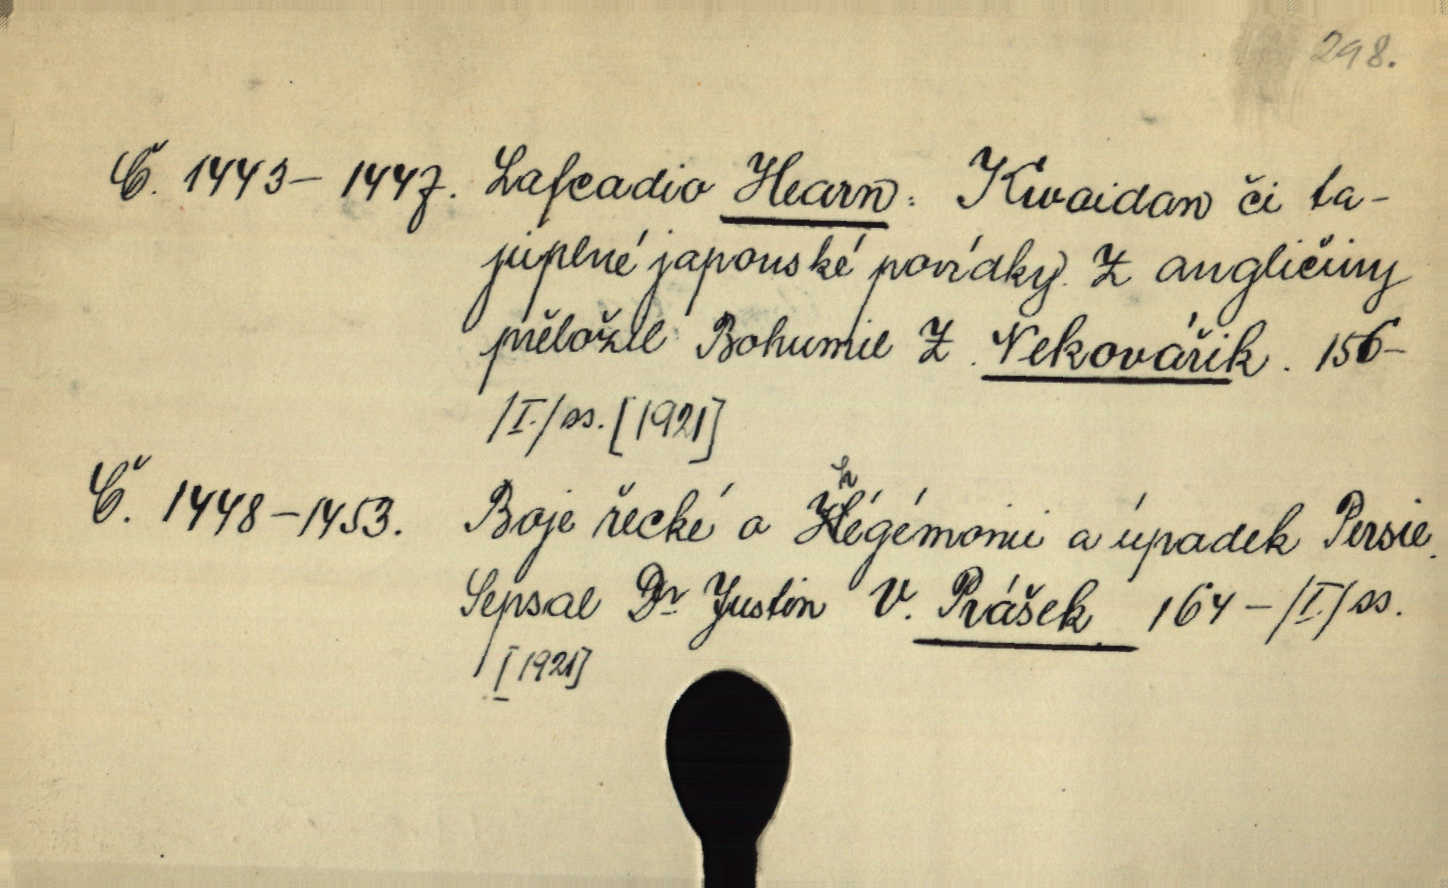 298.
Č. 1443–1447. Lafcadio Hearn: Kwaidan či ta-
júplné japonské povídky. Z angličiny
přeložil Bohumil Z. Nekovářík. 156–
/I./ ss. [1921]
Č. 1448–1453. Boje řecké o hégémonii a úpadek Persie.
Sepsal Dr Justin V. Prášek 164–/I./ ss.
[1921]